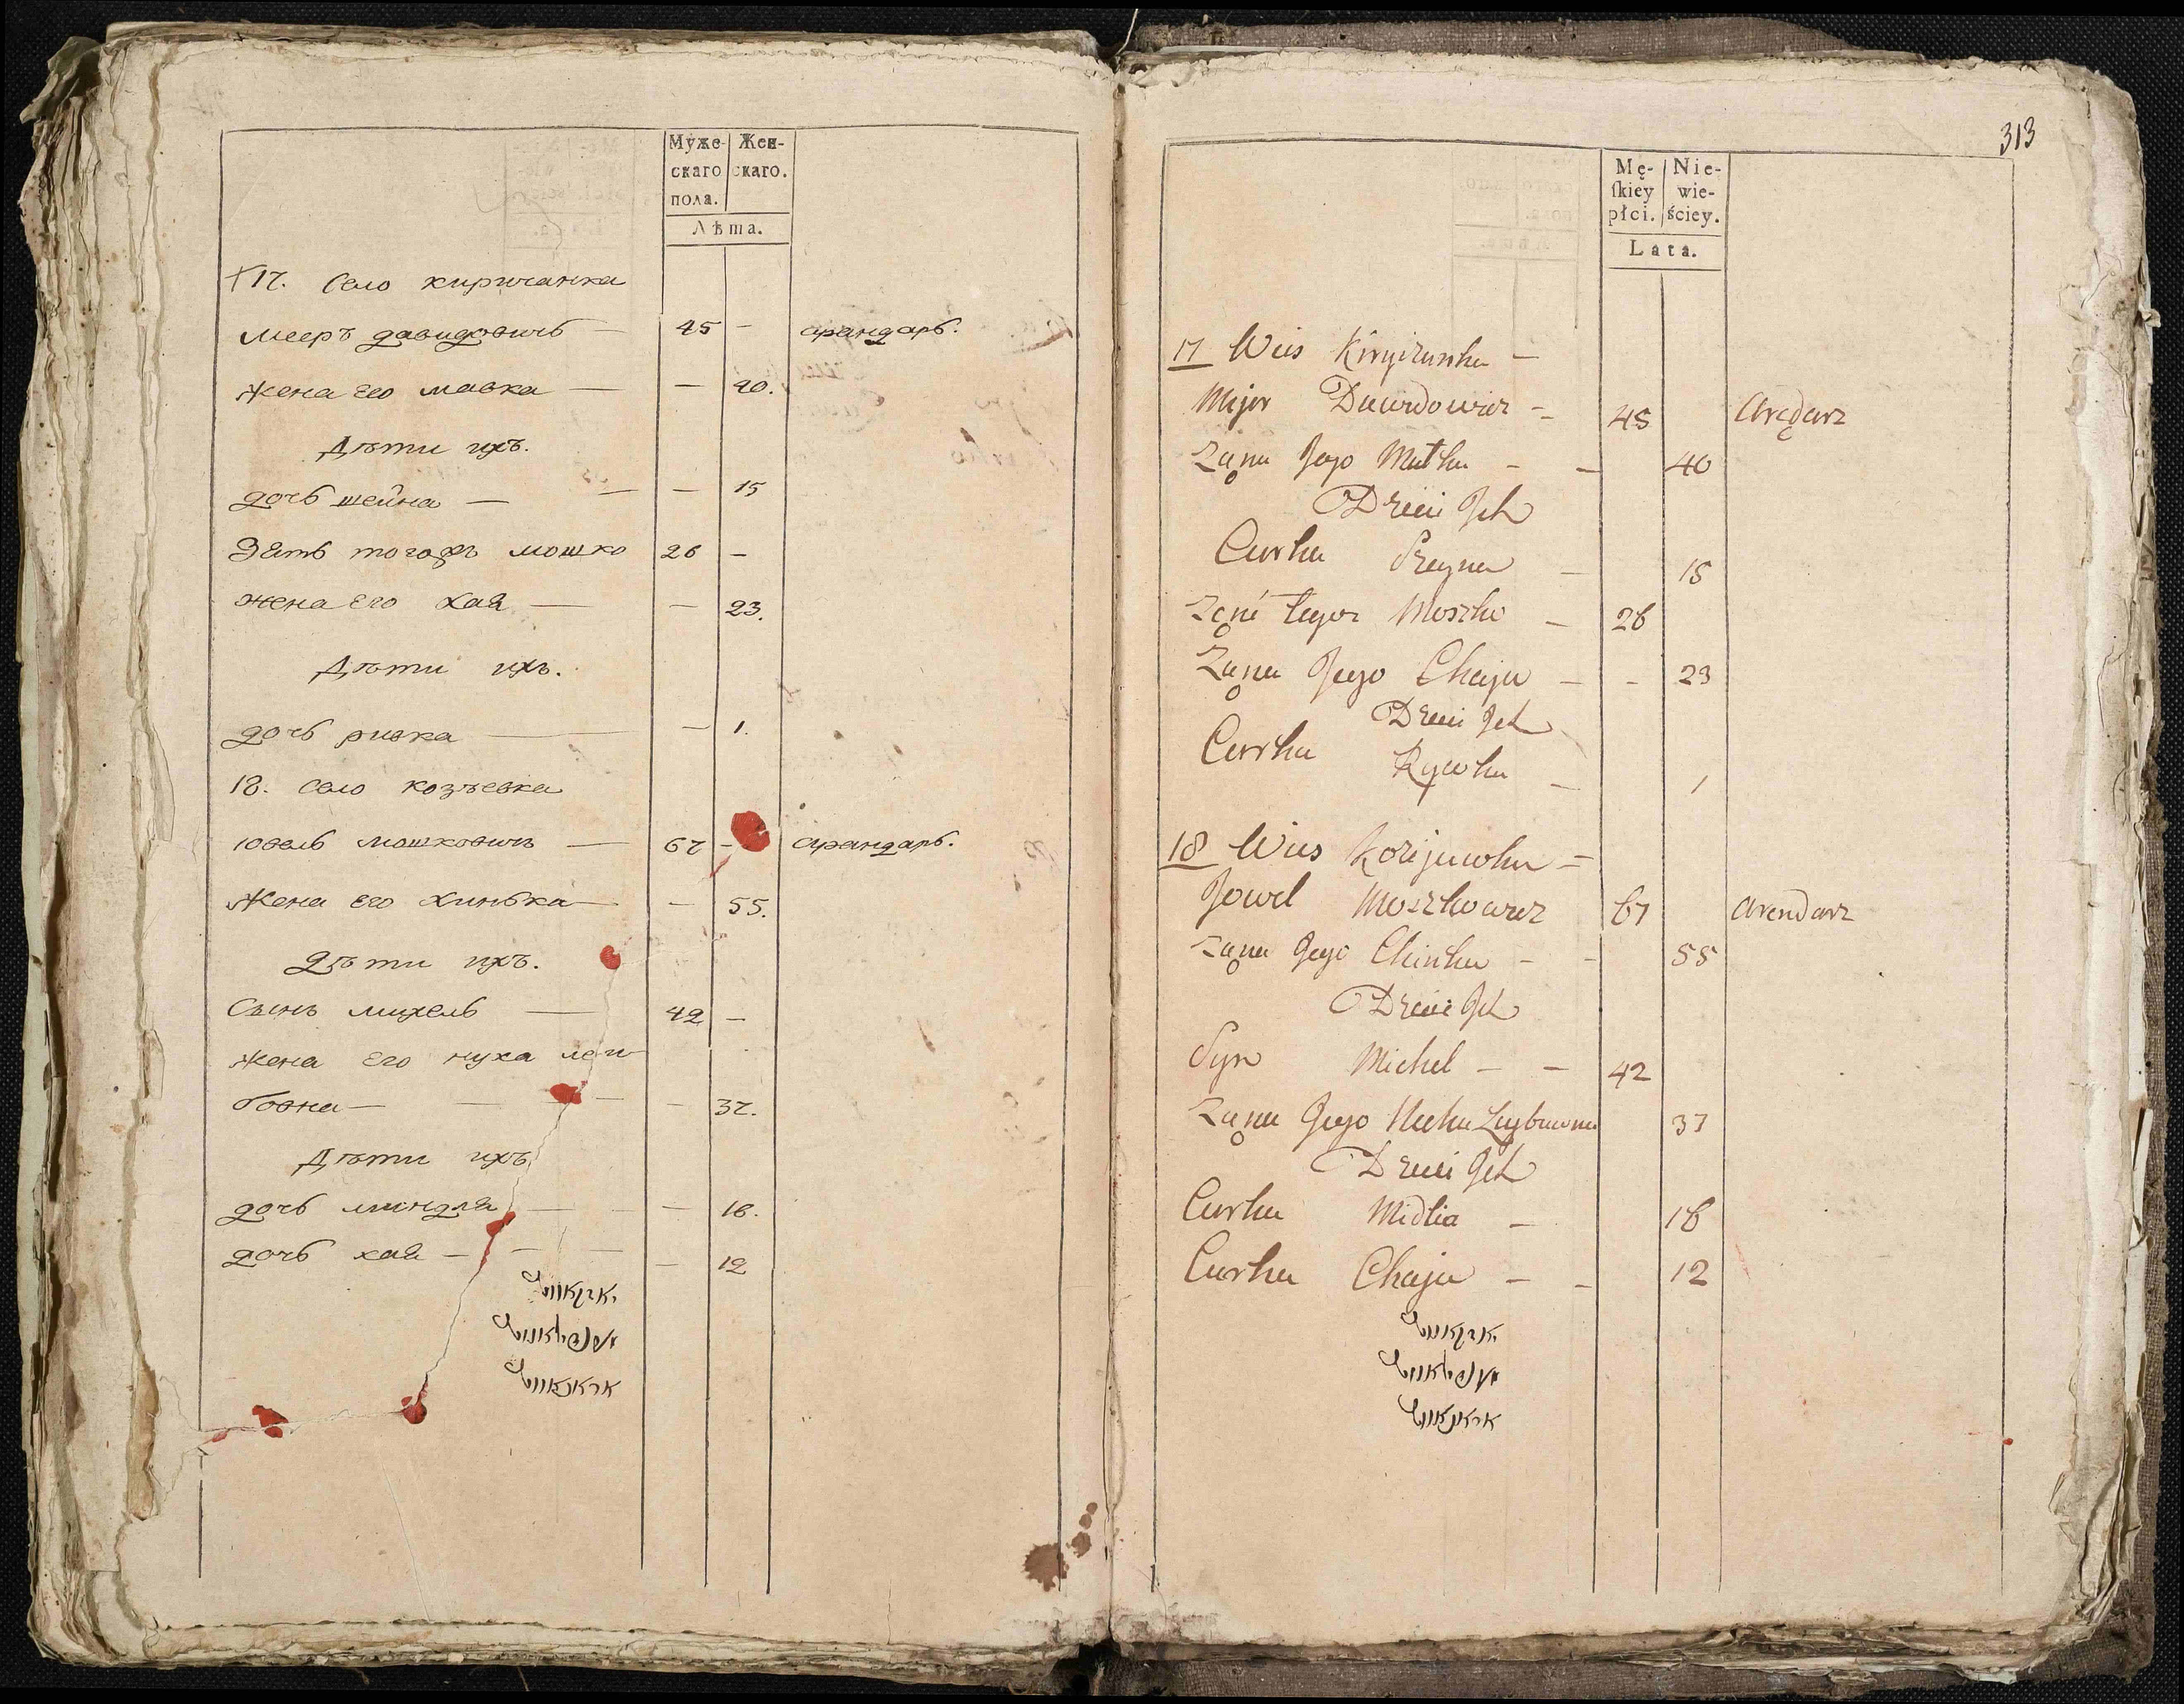 Муже-
скаго
пола.
Жен-
скаго.
Лѣта.
17. Село киричанка
Мееръ давидовичь — 45 — арандарь.
жена его малка — — 40.
Дѣти ихъ.
дочь шейна — — — 15
Зять тогожъ мошко 26 —
жена его хая — — 23.
Дѣти ихъ.
дочь ривка — — 1.
18. Село козѣевка
Іовель мошковичъ — 67 — арандарь.
Жена его хинька — — 55.
Дѣти ихъ.
Сынъ михель — 42 —
жена его нуха лей-
бовна — — — — 37.
Дѣти ихъ
дочь миндля — — — 16.
дочь хая — — — — 12
313
Mę-
ſkiey
płci.
Nie-
wie-
ściey.
Lata.
17 Wies Kiryczanka —
Mejer Dawidowicz — 45 Arędarz
Zona Jego Małka — — 40
Dzieci Ich
Curka Szeyna — 15
Zęńć tegoz Moszko — 26
Zona Jego Chaja — - 23
Dzieci Ich
Curka Rywka — 1
18 Wies Kozijuwka —
Jowel Moszkowicz 67 Arendarz
Zona Jego Chinka — - 55
Dzieci Ich
Syn Michel — — 42
Zona Jego Nucha Leybuwna 37
Dzieci Ich
Curka Midlia — 16
Curka Chaja — - 12